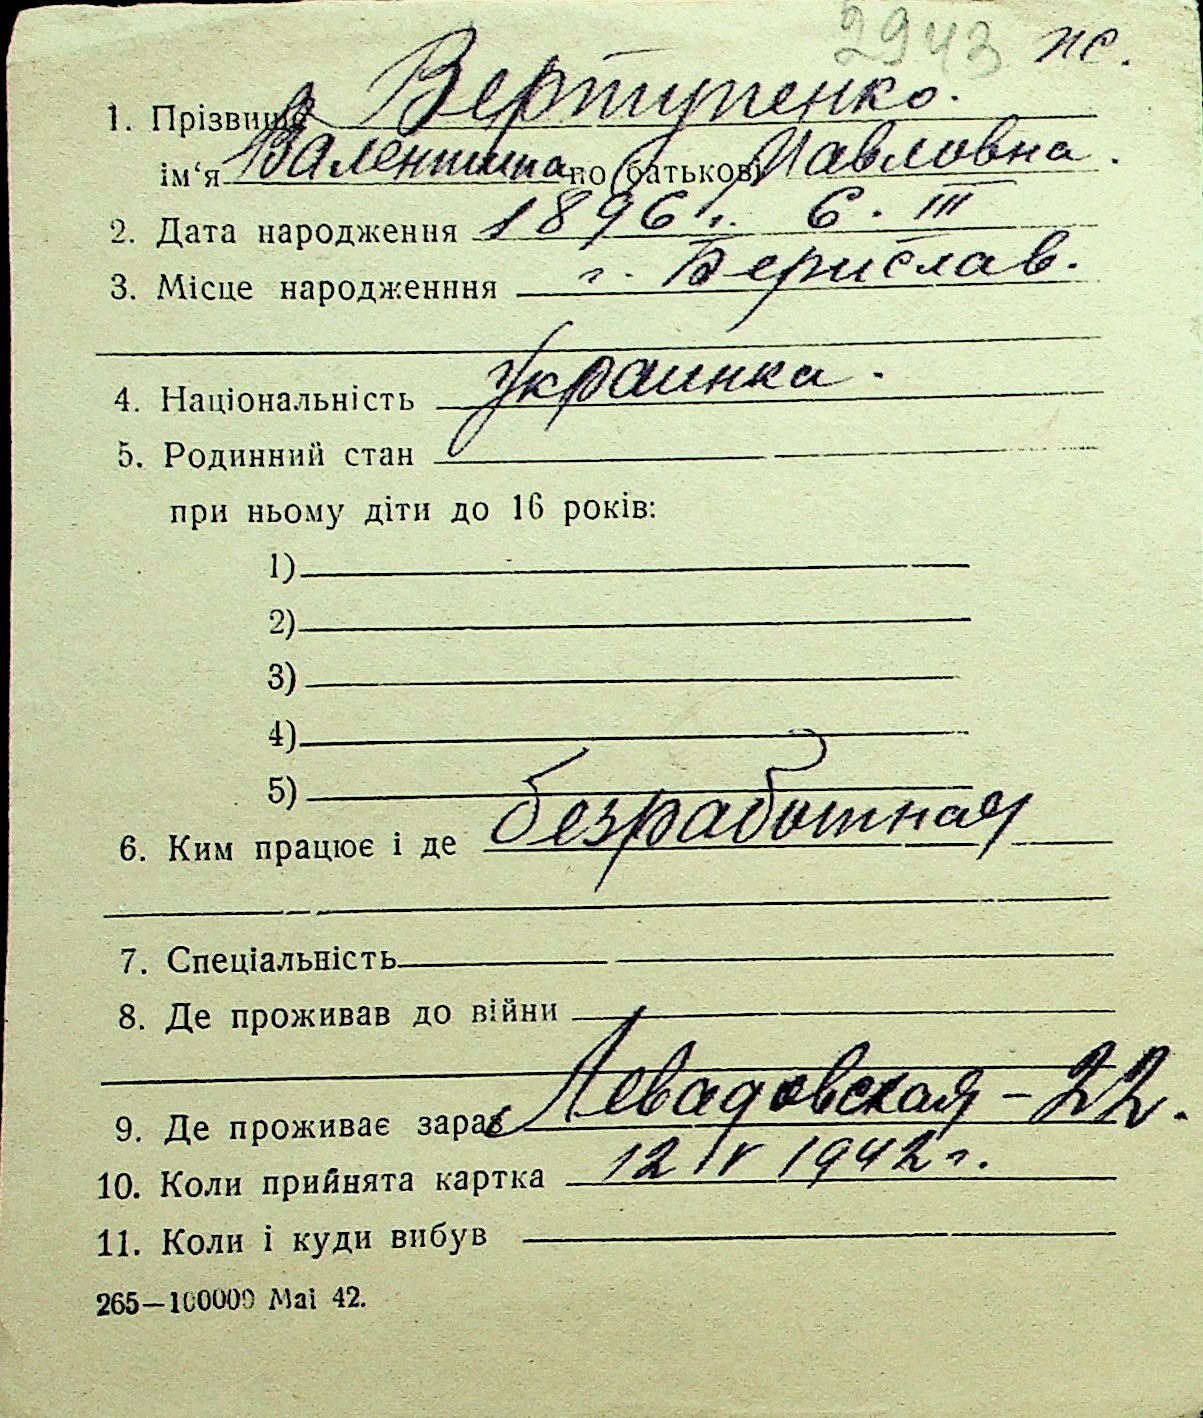 2943 ж.
1. Прізвище Вертупенко.
ім‘я Валентина по батькові Павловна.
2. Дата народження 1896 г. 6. III
3. Місце народженння г. Берислав.
4. Національність Украинка.
5. Родинний стан
при ньому діти до 16 років:
1)
2)
3)
4)
5)
6. Ким працює і де безработная
7. Спеціальність
8. Де проживав до війни
9. Де проживає зараз Левадовская - 22.
10. Коли прийнята картка 12 IV 1942 г.
11. Коли і куди вибув
265—100000 Mai 42.